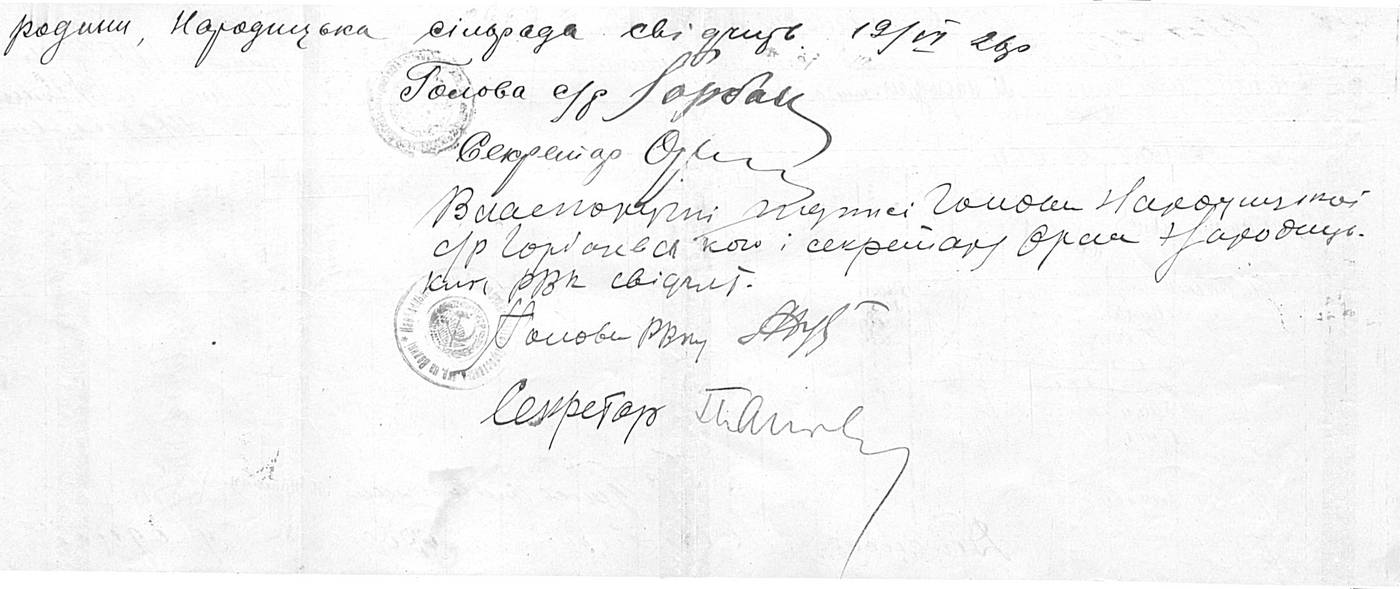 родини, Народицька сільрада свідчить 19/VI 28р
Голова с/р Горбак
Секретар
Власноручні підписі Голови Народицької
с/р Горбаневського і секретаря Орла Народиць-
кий РВК свідчит.
Голова РВку
Секретар